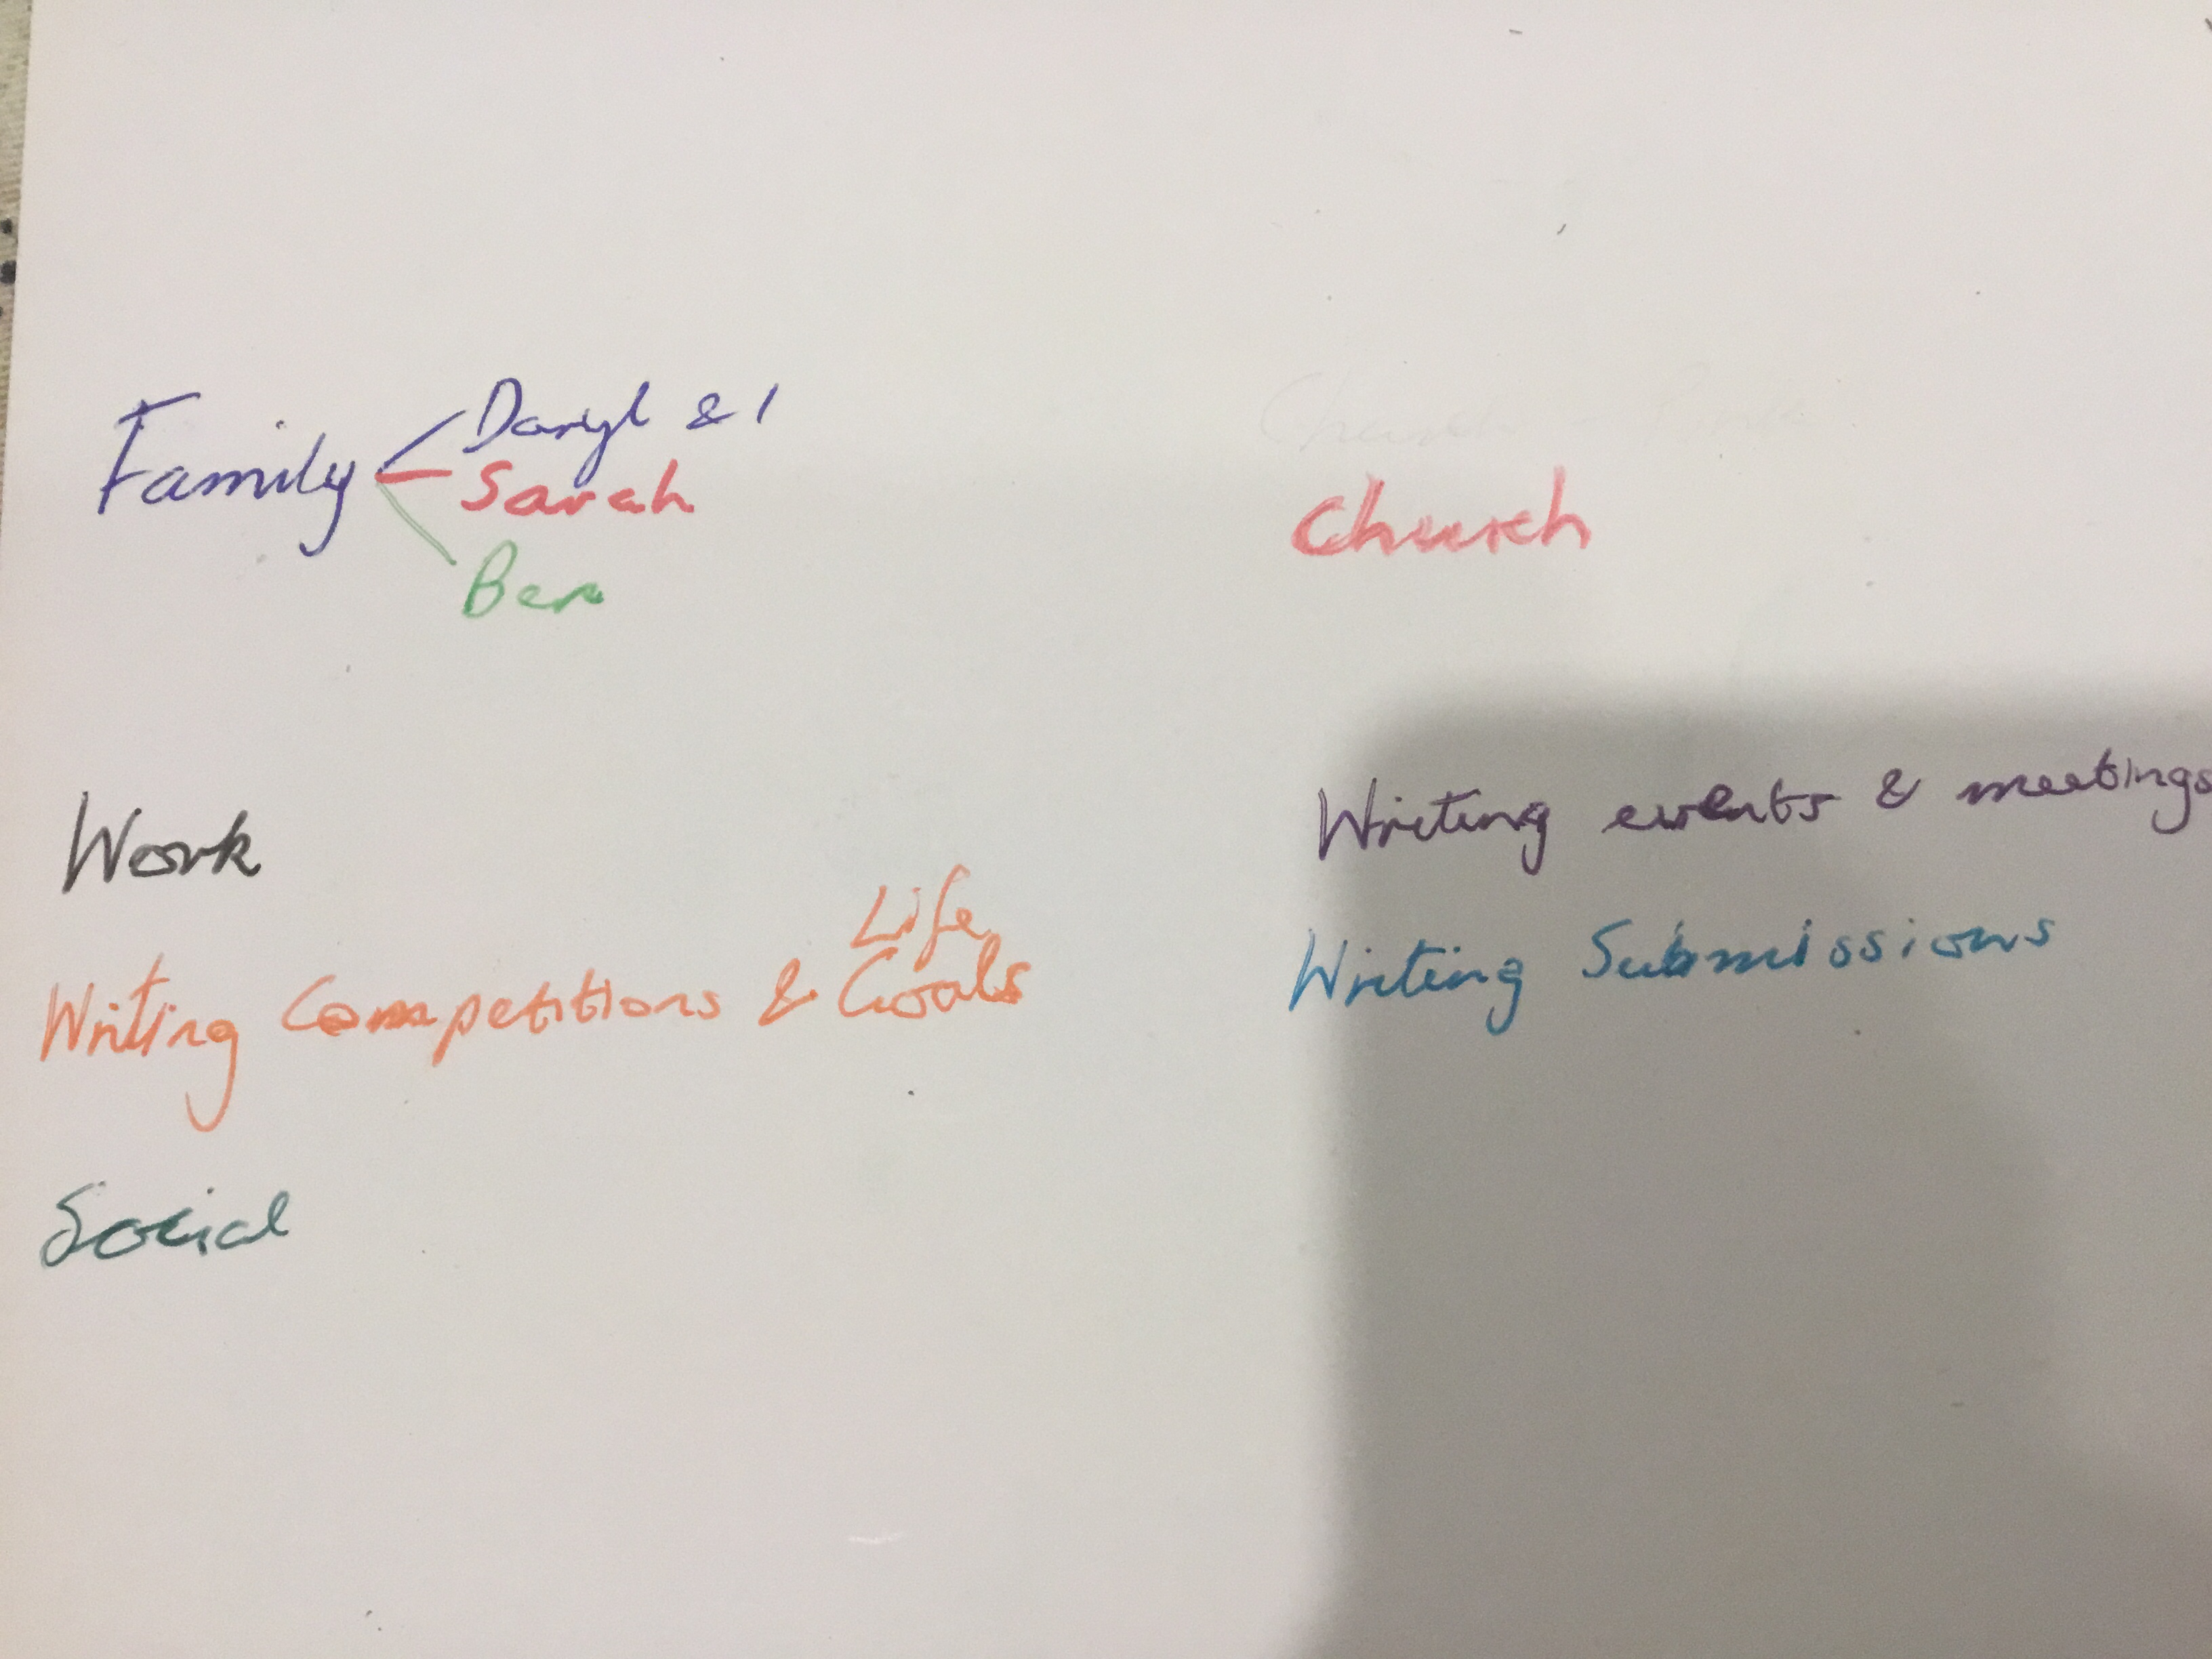 Family
Daryl & I
Sarah
Ben
Church
Work
Writing Competitions & Life Goals
Social
Writing events & meetings
Writing Submissions